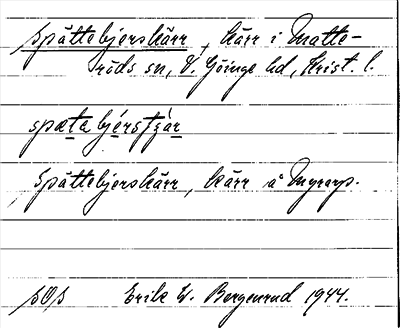 Spättebjerskärr, kärr i Matte-
röds sn, V. Göinge hd, Krist. l.
spætabjérstjàr
Spättebjerskärr, kärr å Myrarp.
SOS Erik W. Bergenrud 1944.